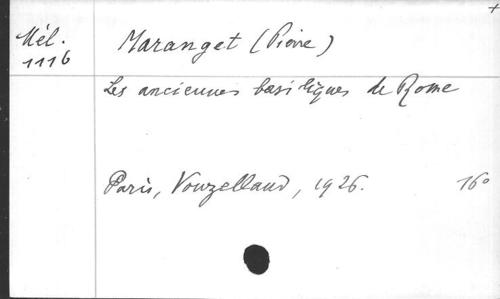 Mél.
1116
Maranget (Piove)
Les anciennes basiliques de Rome
Paris, Vouzelland, 1926. 16°